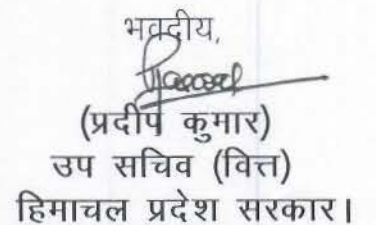 भवदीय,
(प्रदीप कुमार)
उप सचिव (वित्त)
हिमाचल प्रदेश सरकार।